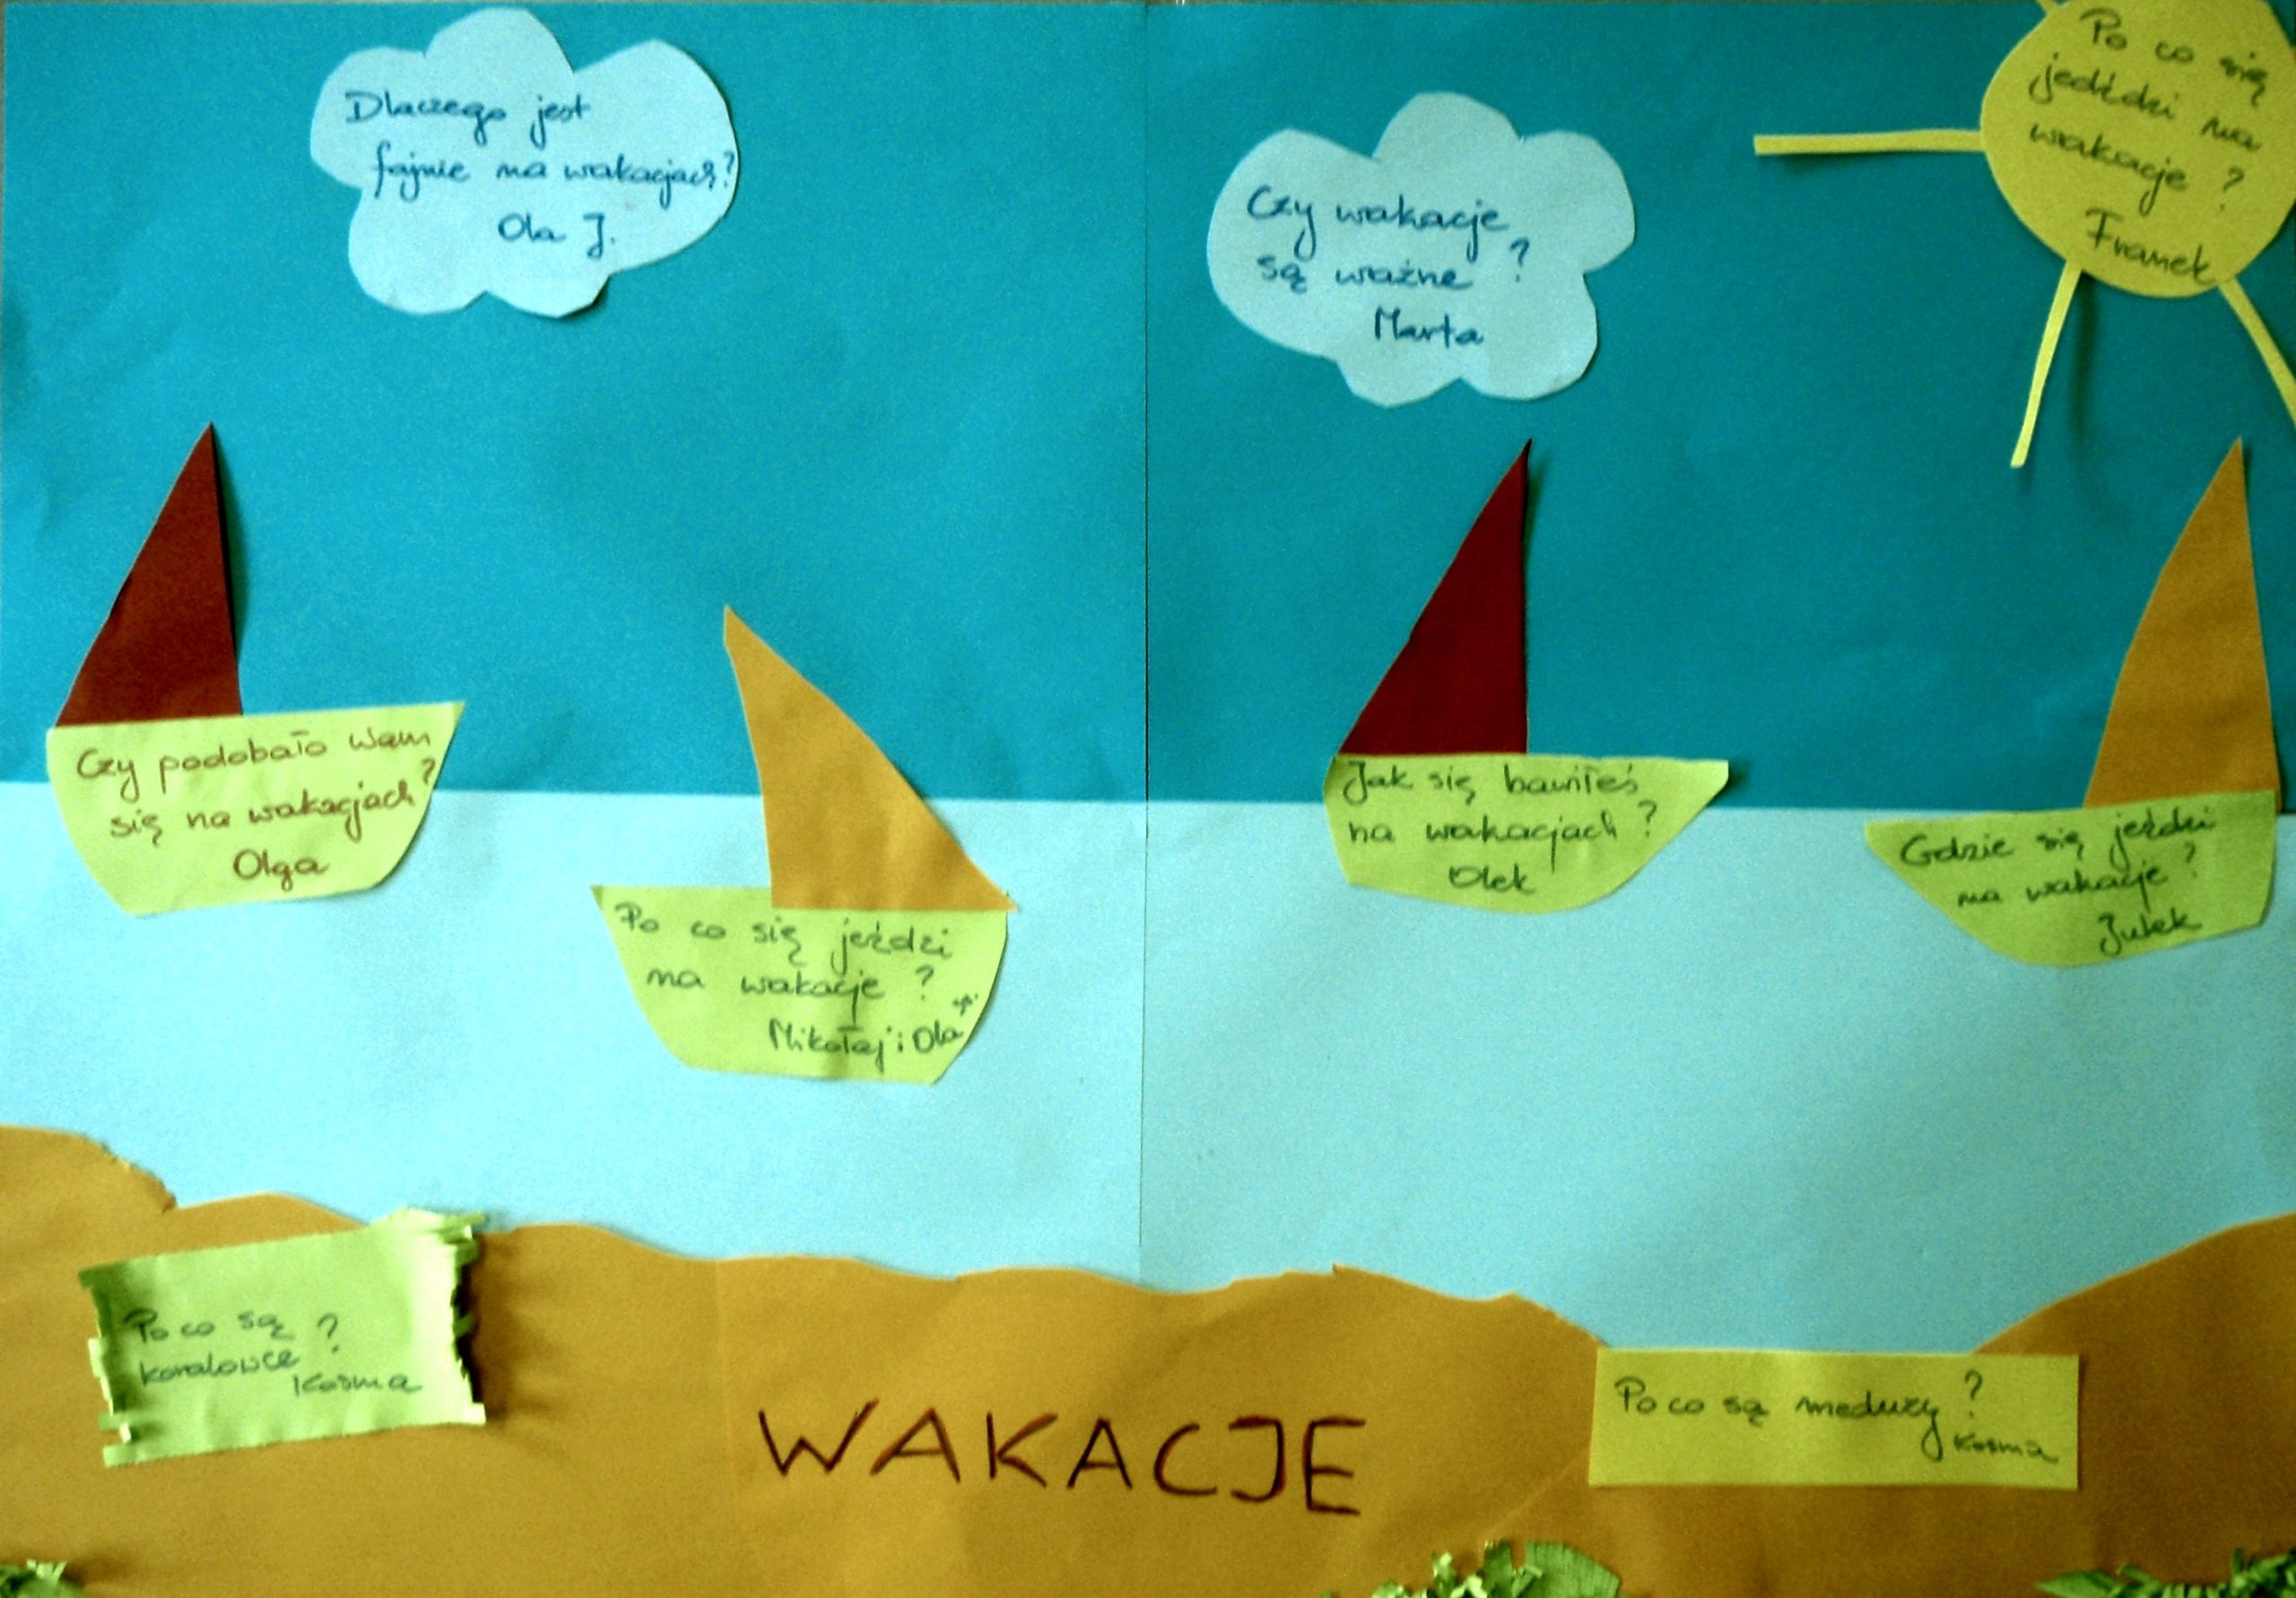 Dlaczego jest
fajnie na wakacjach?
Ola J.
Czy wakacje
są ważne ?
Marta
Po co się
jeździ na
wakacje ?
Franek
Czy podobało Wam
się na wakacjach?
Olga
Po co się jeździ
na wakacje ?
Mikołaj i Ola
Jak się bawiłeś
na wakacjach ?
Olek
Gdzie się jeździ
na wakacje ?
Julek
Po co są
koralowce ?
Kosma
WAKACJE
Po co są meduzy ?
Kosma